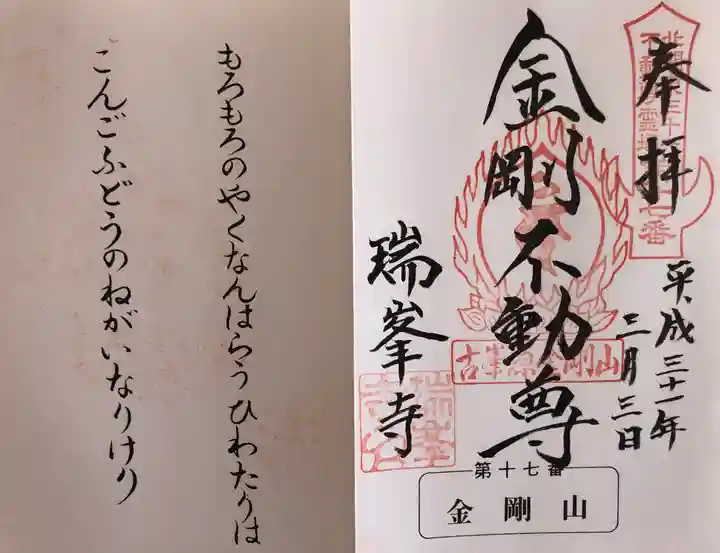 奉拝
北関東三十六不動尊霊場第十七番
平成三十一年
二月三日
金剛不動尊
古峯原金剛山
瑞峯寺
第十七番
金剛山
もろもろのやくなんはらうひわたりは
こんごふどうのねがいなりけり